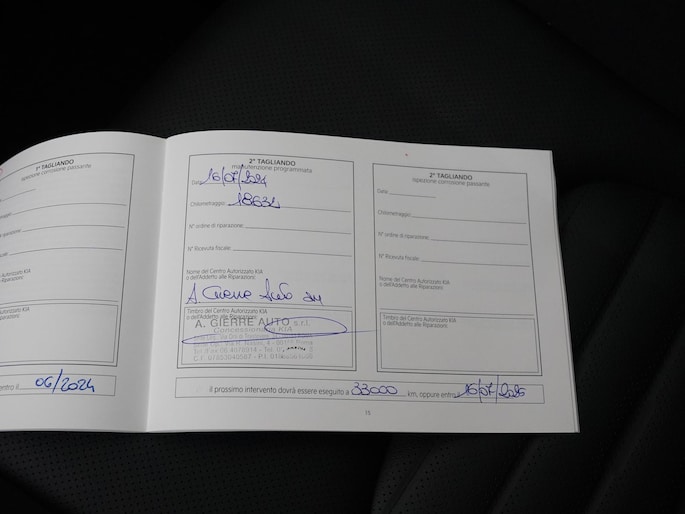 1° TAGLIANDO
ispezione corrosione passante
entro il 06/2024
2° TAGLIANDO
manutenzione programmata
Data 16/07/2024
Chilometraggio: 18634
N° ordine di riparazione:
N° Ricevuta fiscale:
Nome del Centro Autorizzato KIA
o dell'Addetto alle Riparazioni:
A. Gierre Auto
Timbro del Centro Autorizzato KIA
o dell'Addetto alle Riparazioni:
A. GIERRE AUTO s.r.l.
Concessionaria KIA
Il prossimo intervento dovrà essere eseguito a 33000 km, oppure entro 16/07/2025
15
2° TAGLIANDO
ispezione corrosione passante
Data
Chilometraggio:
N° ordine di riparazione:
N° Ricevuta fiscale:
Nome del Centro Autorizzato KIA
o dell'Addetto alle Riparazioni:
Timbro del Centro Autorizzato KIA
o dell'Addetto alle Riparazioni: